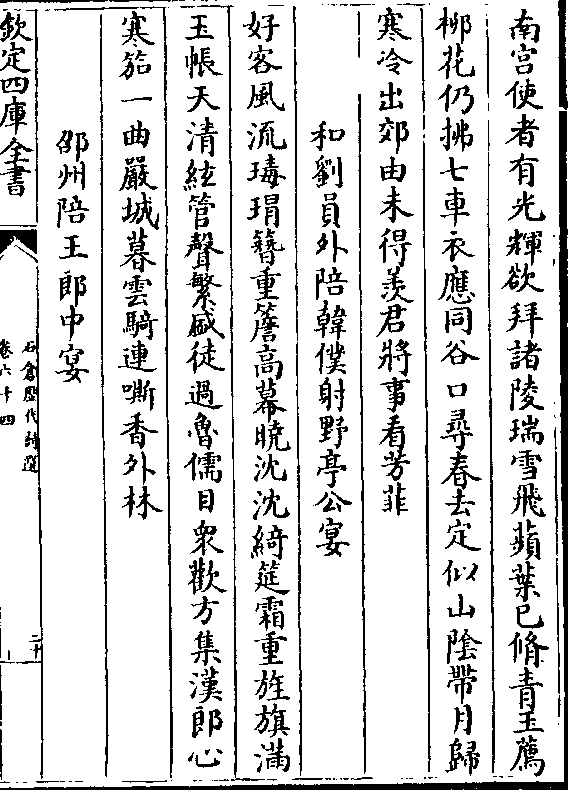 南宫使者有光輝欲拜諸陵瑞雪飛蘋葉已脩青玉薦
栁花仍拂七車衣應同谷口尋春去定似山陰帶月歸
寒冷出郊由未得羡君將事看芳菲
和劉員外陪韓僕射野亭公宴
好客風流瑇瑁簪重簷高幕曉沈沈綺筵霜重旌旗滿
玉帳天清絃管聲繁戲徒過魯儒目衆歡方集漢郎心
寒笳一曲嚴城暮雲騎連嘶香外林
邵州陪王郎中宴
欽定四庫全書
石倉歷代詩選
卷六十四
二十